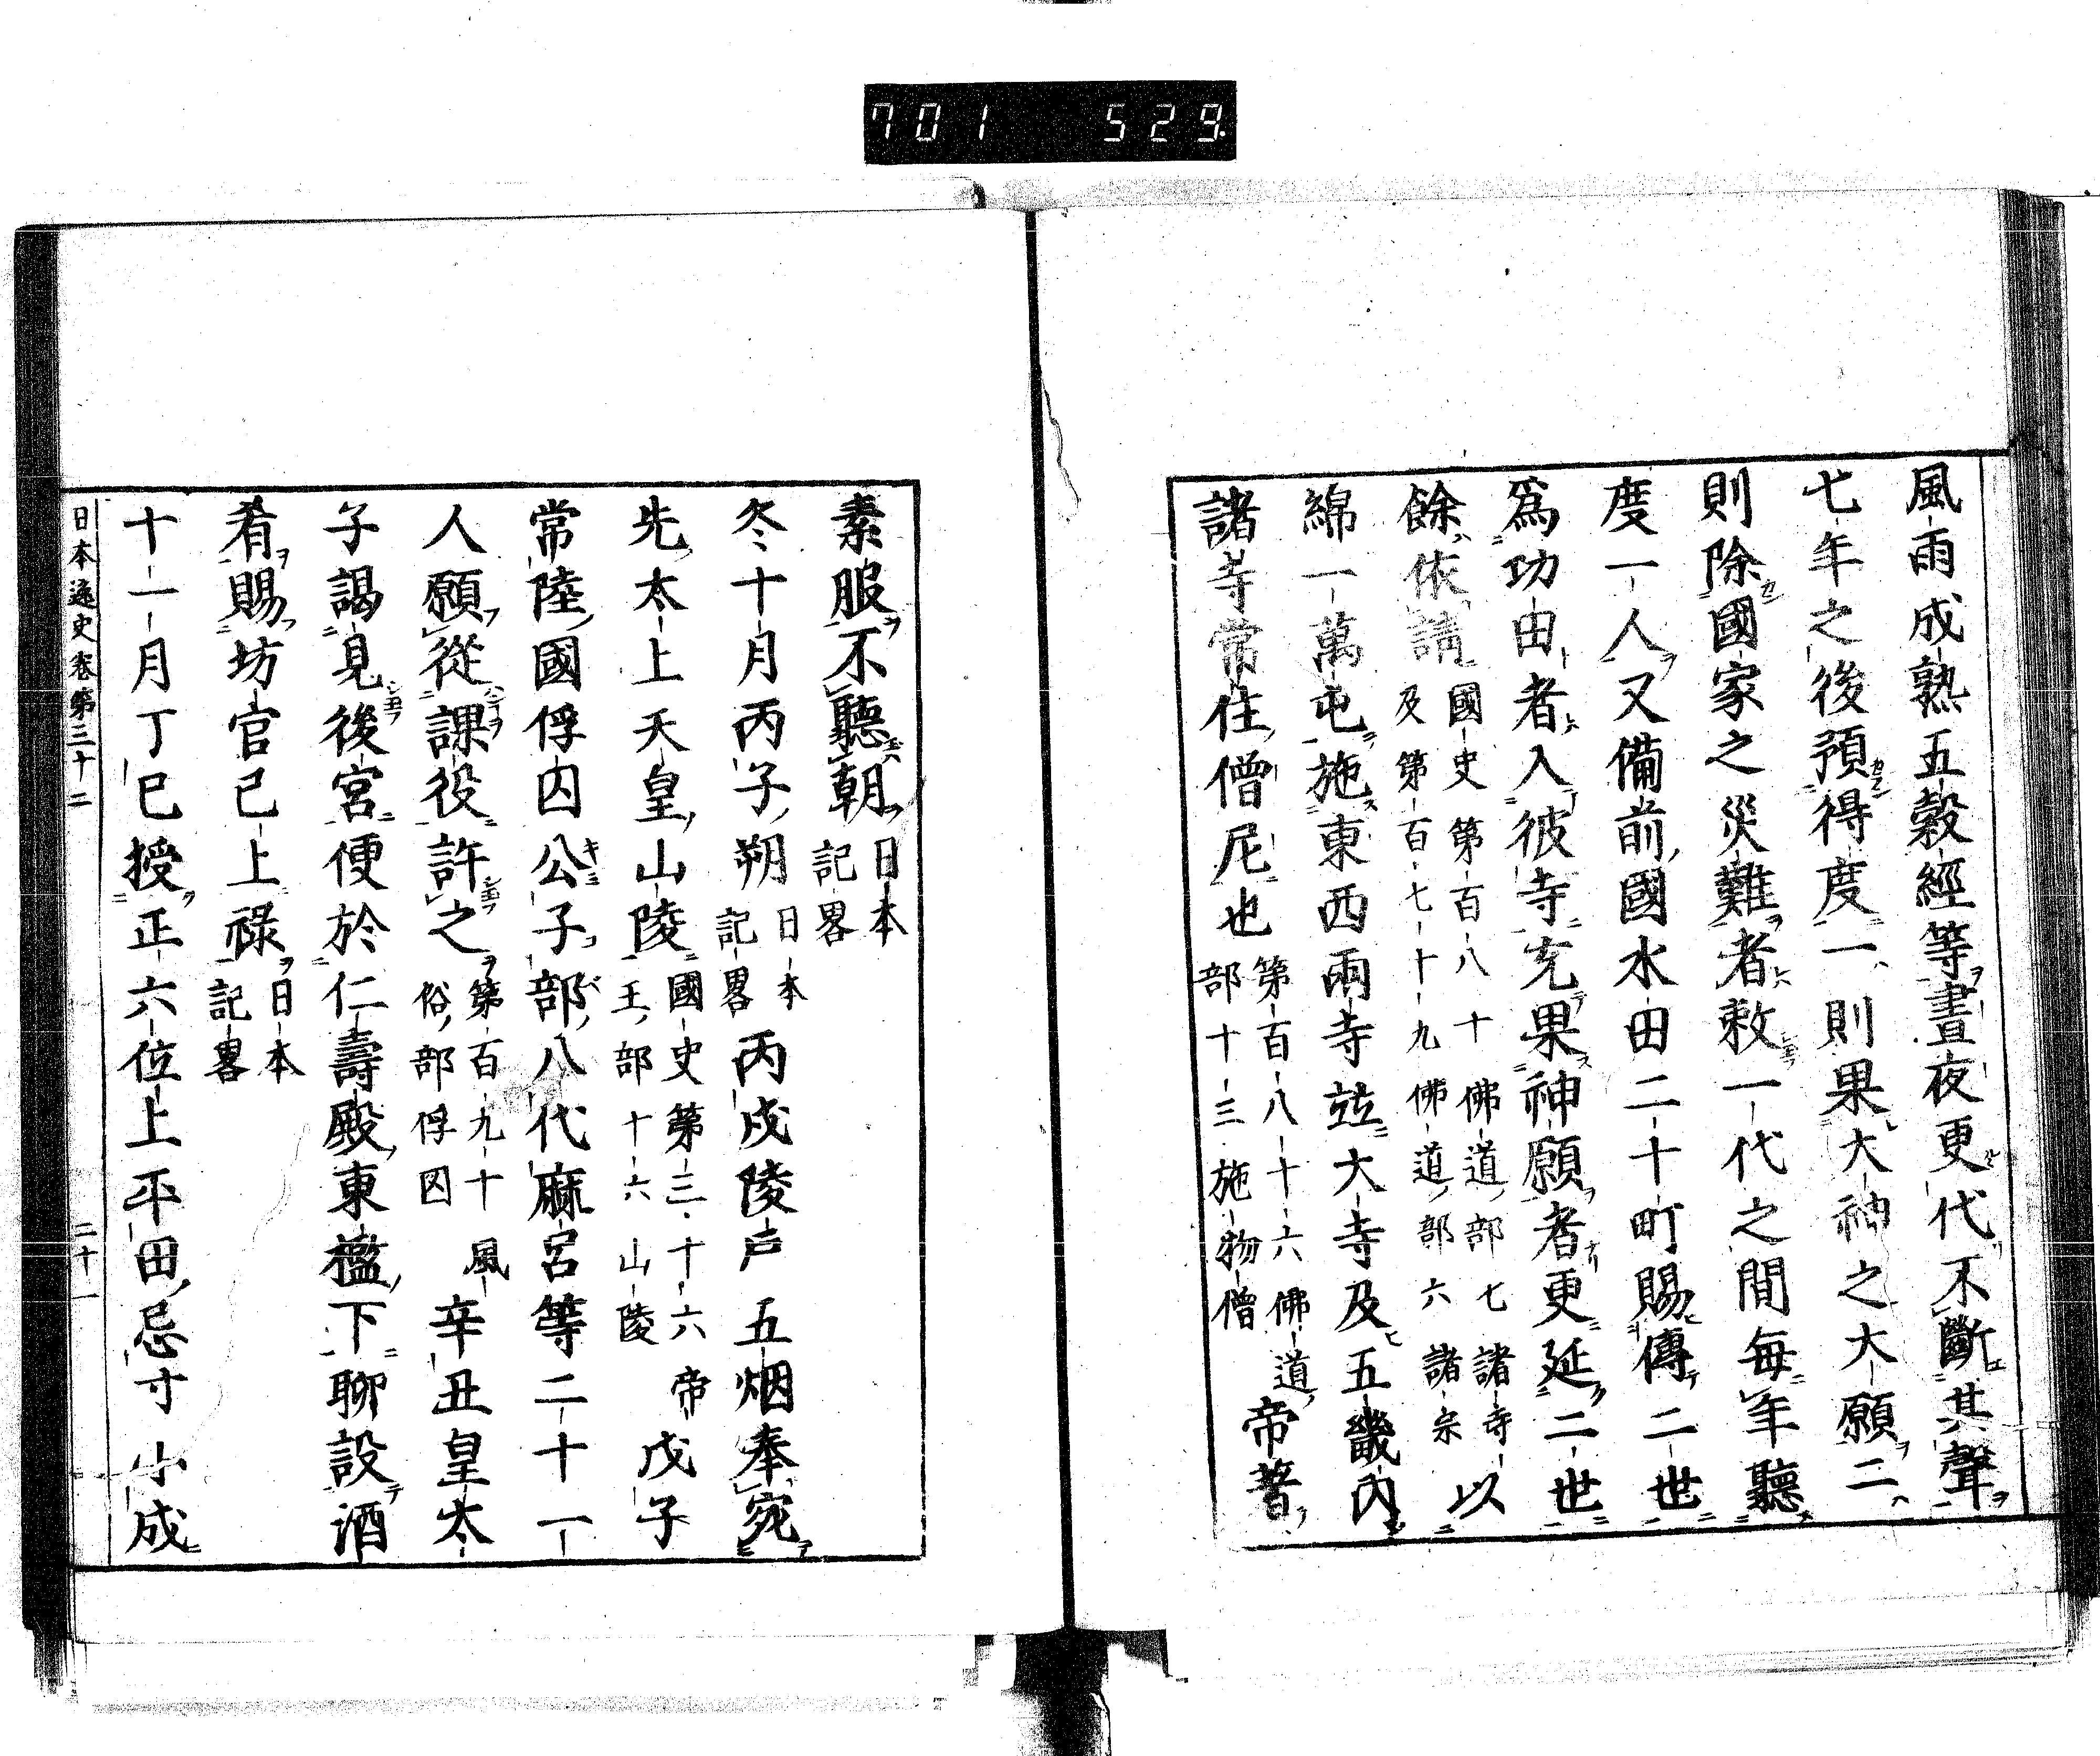 701 529
風雨成熟五穀經等晝夜更代不斷其聲
七年之後預得度一則果大神之大願二
則除國家之災難者敕一代之間每年聽
度一人又備前國水田二十町賜傳二世
爲功由者入彼寺充果神願者更延二世
餘依請國史第百八十佛道部七諸寺及第百七十九佛道部六諸宗以
綿一萬屯施東西兩寺竝大寺及五畿内
諸寺常住僧尼也第百八十六佛道部十三施物僧帝著
素服不聽朝日本記畧
冬十月丙子朔日本記畧丙戌陵戸五烟奉宛
先太上天皇山陵國史第三十六帝王部十六山陵戊子
常陸國俘囚公子部八代麻呂等二十一
人願從課役許之第百九十風俗部俘囚辛丑皇太
子謁見後宮便於仁壽殿東楹下聊設酒
肴賜坊官已上祿日本記畧
十一月丁巳授正六位上平田忌寸小成
日本逸史卷第三十二 二十一